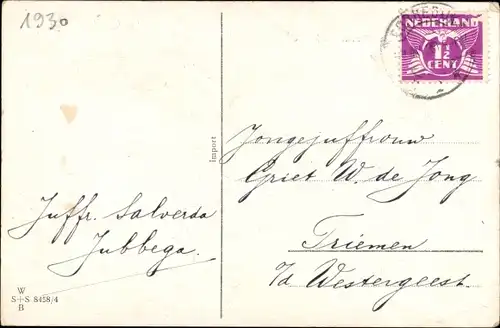 1930
NEDERLAND
1½
CENT
Import
Jongejuffrouw
Griet W. de Jong
Triemen
i/d Westergeest.
Juffr. Salverda
Jubbega.
W
S+S 8458/4
B